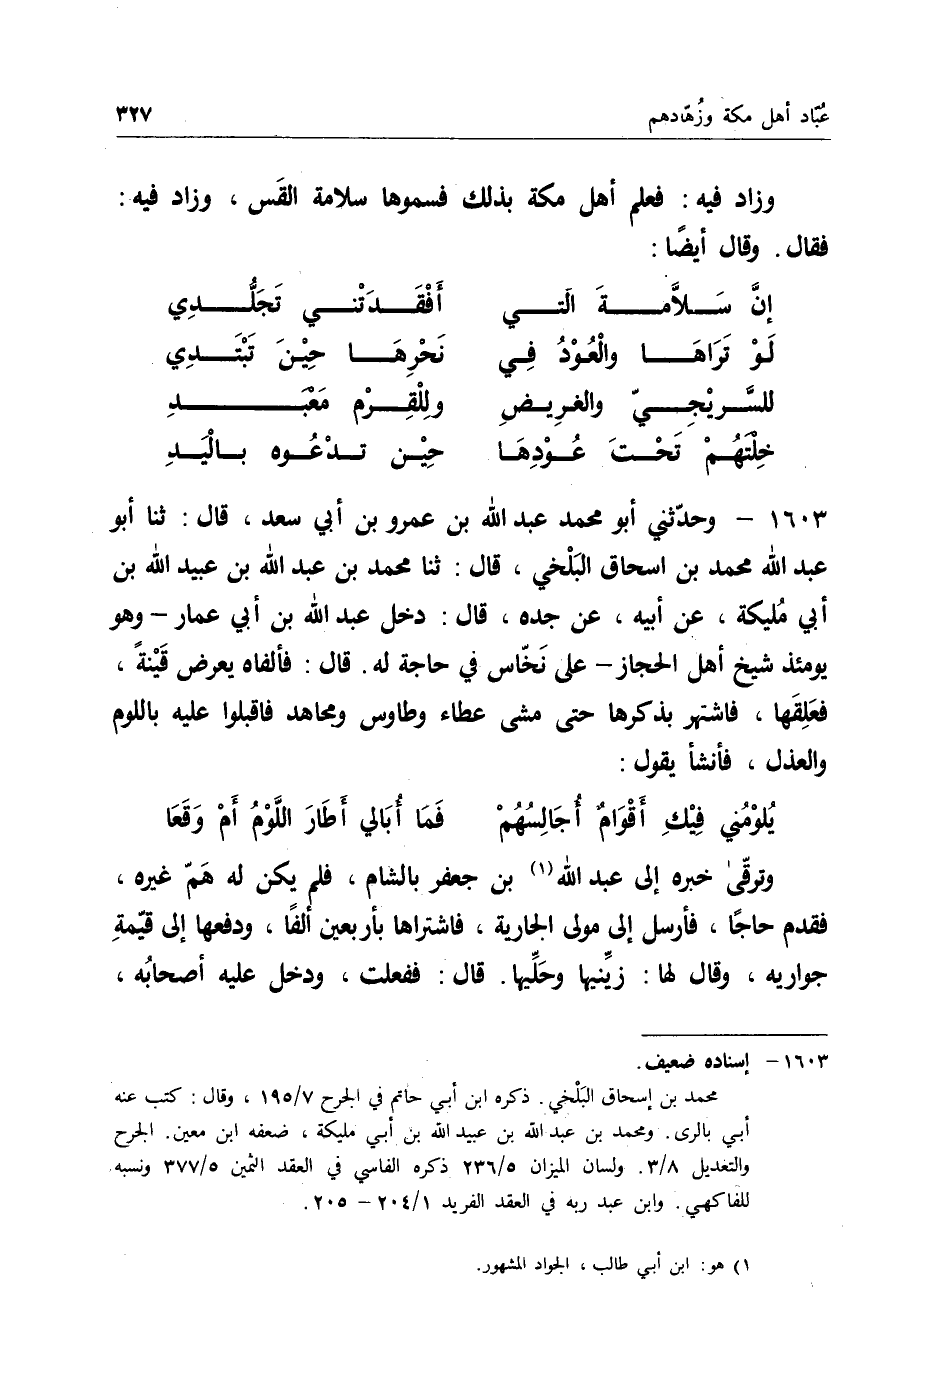 عُبّاد أهل مكة وزُهّادهم ٣٢٧
وزاد فيه : فعلم أهل مكة بذلك فسموها سلامة القَس ، وزاد فيه :
فقال . وقال أيضًا :
إنَّ سَلاَّمةَ الَتي أَفْقَدَتْني تَجَلُّدِي
لَوْ تَرَاهَا والْعُوْدُ فِي نَحْرِهَا حِيْنَ تَبْتَدِي
للسَّريْجيّ والغرِيضِ وللْقِرْم مَعْبَدِ
خِلْتَهُمْ تَحْتَ عُوْدِهَا حِيْن تدْعُوه بالْيَدِ
١٦٠٣ – وحدّثني أبو محمد عبد الله بن عمرو بن أبي سعد ، قال : ثنا أبو
عبد الله محمد بن اسحاق البَلْخي ، قال : ثنا محمد بن عبد الله بن عبيد الله بن
أبي مُليكة ، عن أبيه ، عن جده ، قال : دخل عبد الله بن أبي عمار – وهو
يومئذ شيخ أهل الحجاز – على نَخّاس في حاجة له . قال : فألفاه يعرض قَيْنةً ،
فعَلِقَها ، فاشتهر بذكرها حتى مشى عطاء وطاوس ومجاهد فاقبلوا عليه باللوم
والعذل ، فأنشأ يقول :
يُلوْمُني فِيْكِ أَقْوَامٌ أُجَالِسُهُمْ فَمَا أُبَالي أَطَارَ اللَّوْمُ أَمْ وَقَعَا
وترقّىٰ خبره إلى عبد الله (١) بن جعفر بالشام ، فلم يكن له هَمّ غيره ،
فقدم حاجًا ، فأرسل إلى مولى الجارية ، فاشتراها بأربعين ألفًا ، ودفعها إلى قيّمةِ
جواريه ، وقال لها : زيِّنيها وحَلِّيها . قال : ففعلت ، ودخل عليه أصحابُه ،
١٦٠٣ – إسناده ضعيف .
محمد بن إسحاق البَلْخي . ذكره ابن أبي حاتم في الجرح ١٩٥/٧ ، وقال : كتب عنه
أبي بالرى . ومحمد بن عبد الله بن عبيد الله بن أبي مليكة ، ضعفه ابن معين . الجرح
والتعديل ٣/٨ . ولسان الميزان ٢٣٦/٥ ذكره الفاسي في العقد الثمين ٣٧٧/٥ ونسبه
للفاكهي . وابن عبد ربه في العقد الفريد ٢٠٤/١ – ٢٠٥ .
١) هو : ابن أبي طالب ، الجواد المشهور .